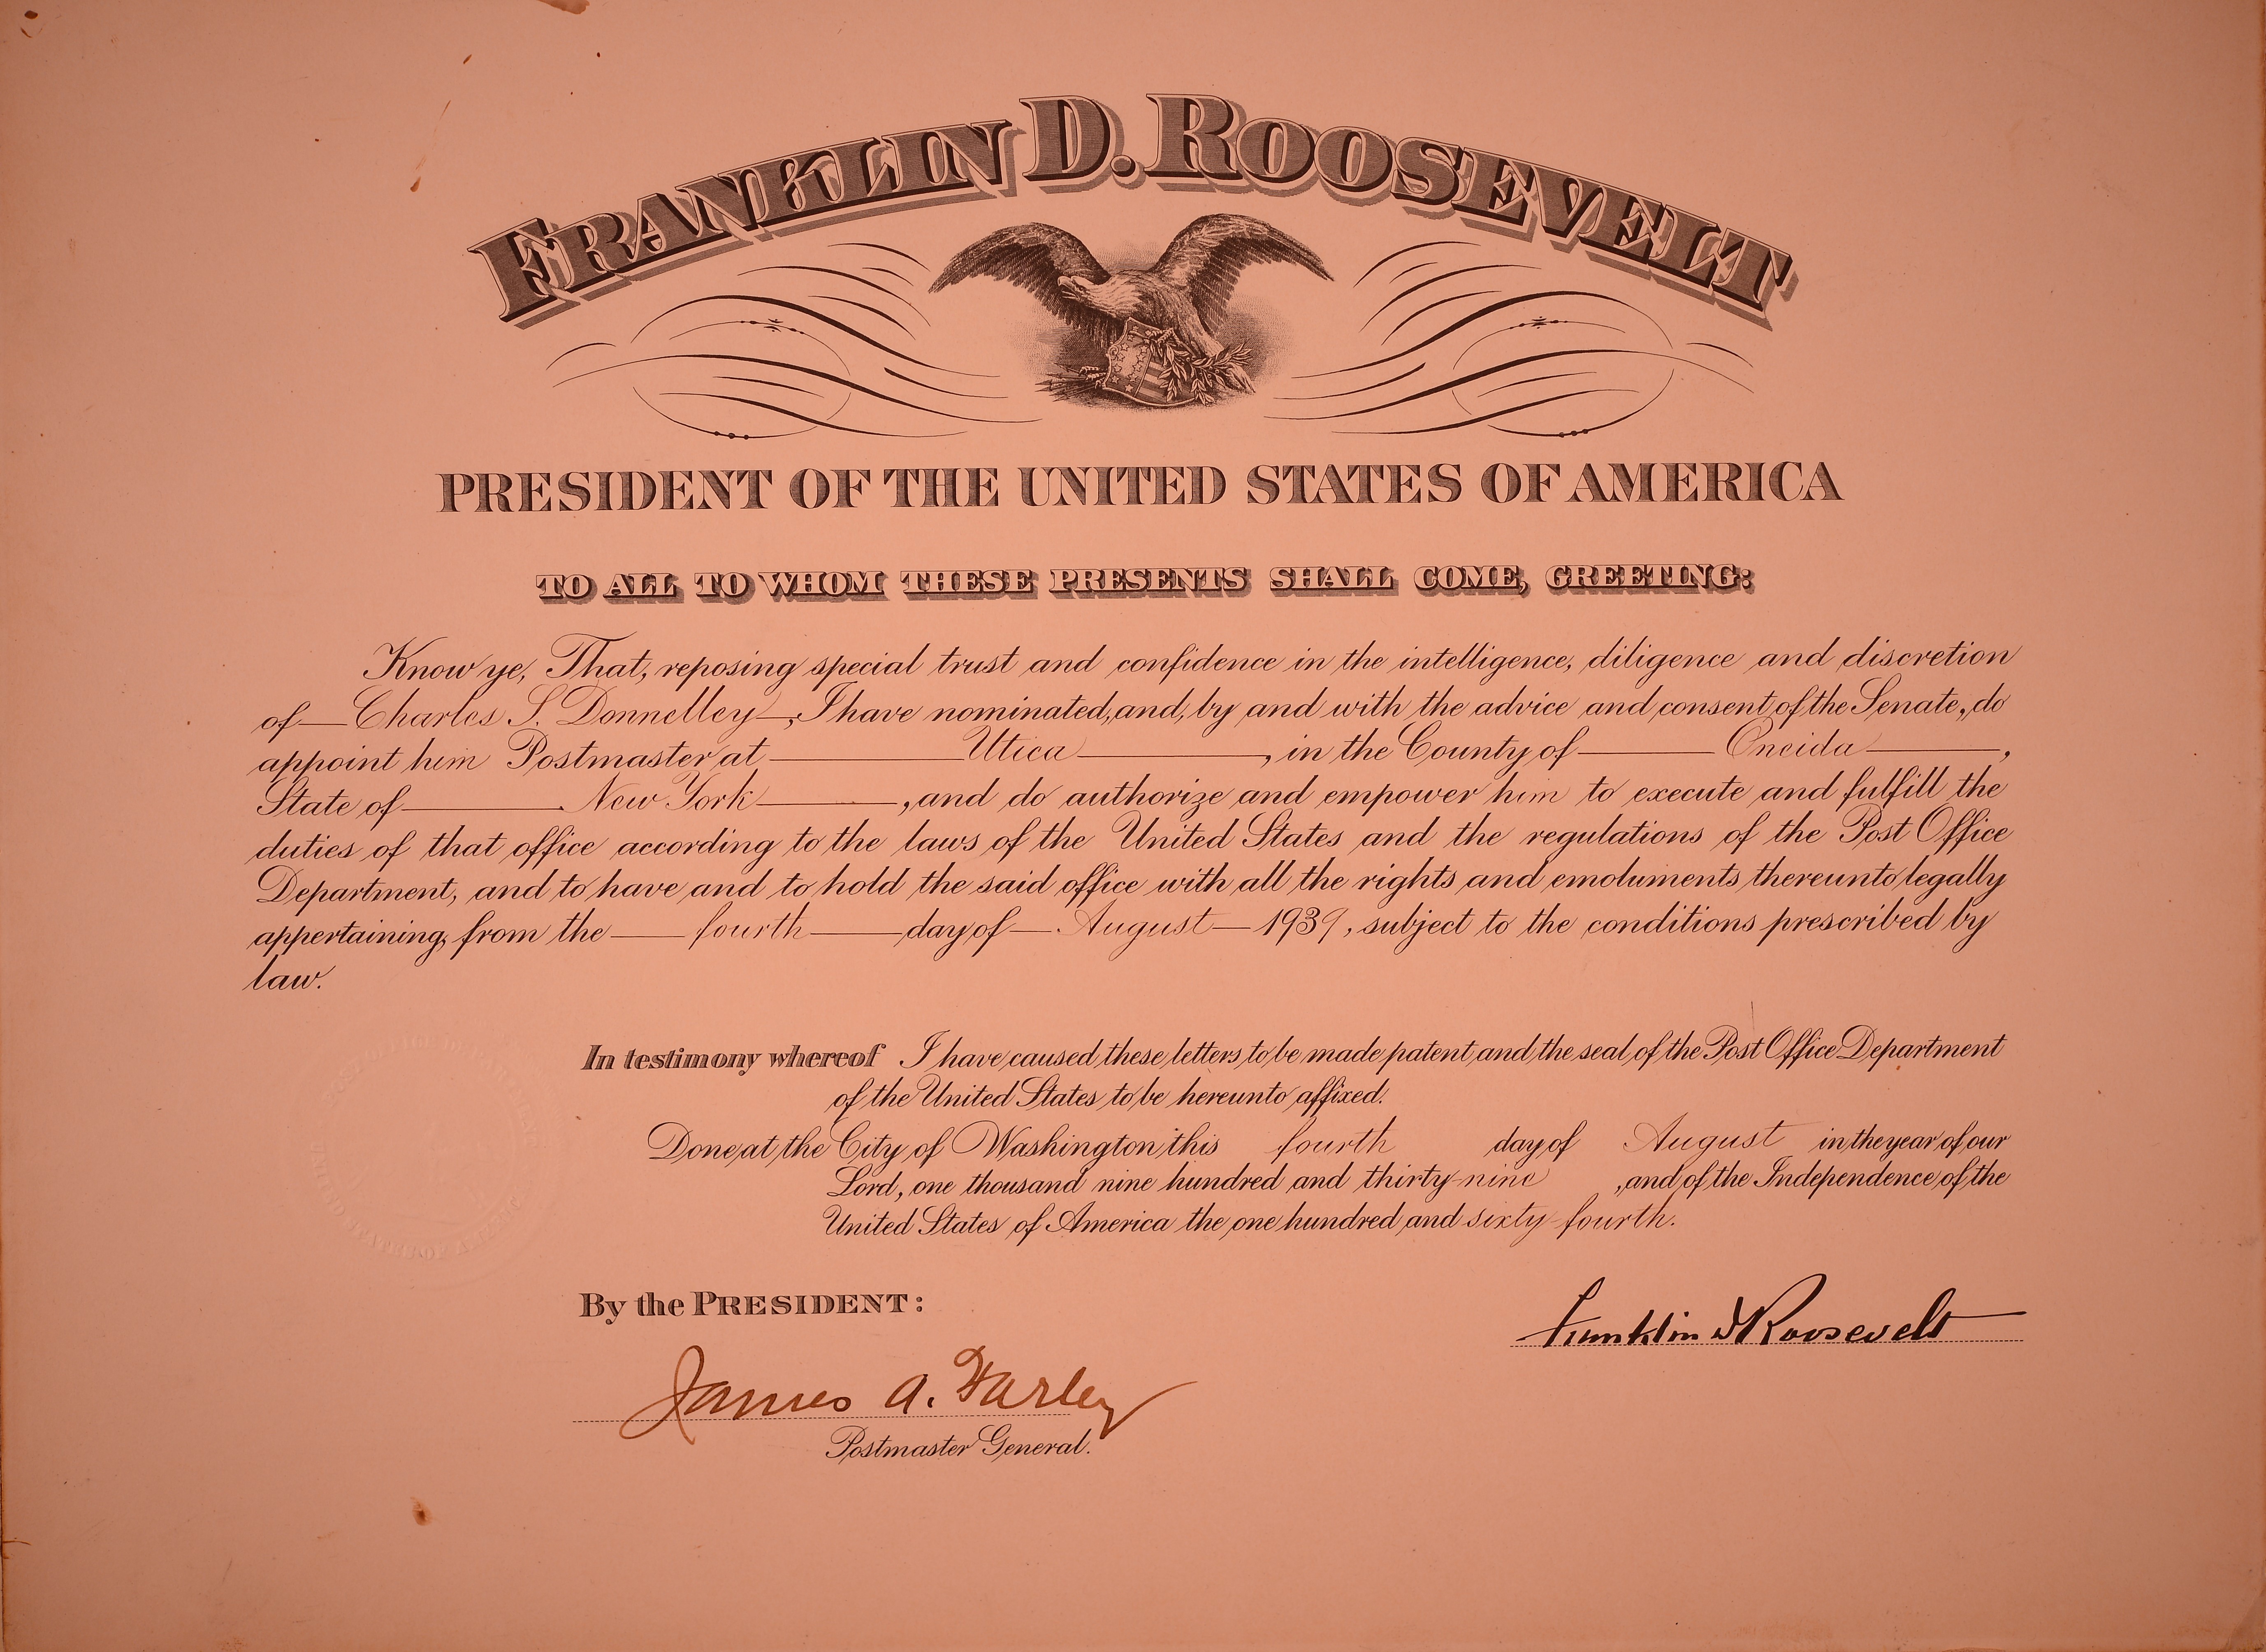 FRANKLIN D. ROOSEVELT
PRESIDENT OF THE UNITED STATES OF AMERICA
TO ALL TO WHOM THESE PRESENTS SHALL COME, GREETING:
Know ye, That, reposing special trust and confidence in the intelligence, diligence and discretion
of Charles S. Donnelley, I have nominated, and, by and with the advice and consent of the Senate, do
appoint him Postmaster at Utica, in the County of Oneida,
State of New York, and do authorize and empower him to execute and fulfill the
duties of that office according to the laws of the United States and the regulations of the Post Office
Department, and to have and to hold the said office with all the rights and emoluments thereunto legally
appertaining, from the fourth day of August 1939, subject to the conditions prescribed by
law.
In testimony whereof I have caused these letters to be made patent and the seal of the Post Office Department
of the United States to be hereunto affixed.
Done at the City of Washington this fourth day of August in the year of our
Lord, one thousand nine hundred and thirty-nine, and of the Independence of the
United States of America the one hundred and sixty-fourth.
By the PRESIDENT:
Franklin D Roosevelt
James A. Farley
Postmaster General.